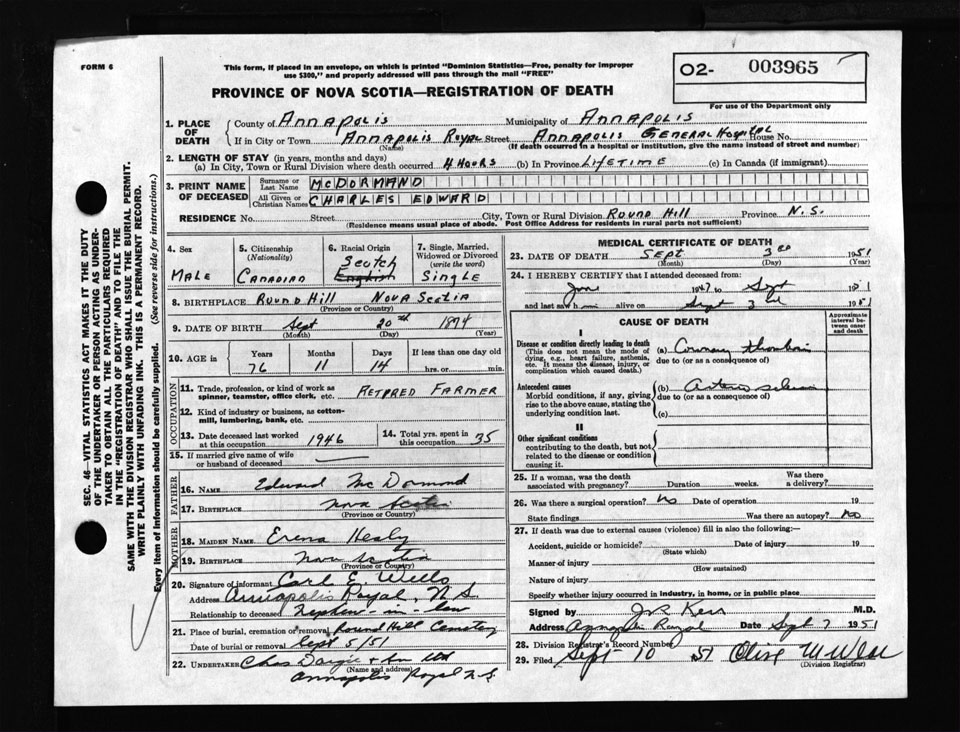 FORM 6
This form, if placed in an envelope, on which is printed "Dominion Statistics—Free, penalty for improper
use $300," and properly addressed will pass through the mail "FREE"
PROVINCE OF NOVA SCOTIA—REGISTRATION OF DEATH
O2- 003965
For use of the Department only
SEC. 46—VITAL STATISTICS ACT MAKES IT THE DUTY
OF THE UNDERTAKER OR PERSON ACTING AS UNDER-
TAKER TO OBTAIN ALL THE PARTICULARS REQUIRED
IN THE "REGISTRATION OF DEATH" AND TO FILE THE
SAME WITH THE DIVISION REGISTRAR WHO SHALL ISSUE THE BURIAL PERMIT.
WRITE PLAINLY WITH UNFADING INK. THIS IS A PERMANENT RECORD.
Every item of Information should be carefully supplied. (See reverse side for instructions.)
1. PLACE OF DEATH
County of Annapolis Municipality of Annapolis
If in City or Town Annapolis Royal Street Annapolis General Hospital House No.
(Name) (If death occurred in a hospital or institution, give the name instead of street and number)
2. LENGTH OF STAY (in years, months and days)
(a) In City, Town or Rural Division where death occurred 4 Hours (b) In Province Lifetime (c) In Canada (if immigrant)
3. PRINT NAME OF DECEASED
Surname or Last Name McDORMAND
All Given or Christian Names CHARLES EDWARD
RESIDENCE No. Street City, Town or Rural Division Round Hill Province N.S.
(Residence means usual place of abode. Post Office Address for residents in rural parts not sufficient)
4. Sex Male
5. Citizenship (Nationality) Canadian
6. Racial Origin Scotch English
7. Single, Married, Widowed or Divorced (write the word) Single
8. BIRTHPLACE Round Hill Nova Scotia
(Province or Country)
9. DATE OF BIRTH Sept 20th 1874
(Month) (Day) (Year)
10. AGE in Years 76 Months 11 Days 14 If less than one day old hrs. or min.
OCCUPATION
11. Trade, profession, or kind of work as
spinner, teamster, office clerk, etc. Retired Farmer
12. Kind of industry or business, as cotton-
mill, lumbering, bank, etc.
13. Date deceased last worked at this occupation 1946
14. Total yrs. spent in this occupation 35
15. If married give name of wife
or husband of deceased —
FATHER
16. NAME Edward Mc Dormond
17. BIRTHPLACE Nova Scotia
(Province or Country)
MOTHER
18. MAIDEN NAME Erena Healy
19. BIRTHPLACE Nova Scotia
(Province or Country)
20. Signature of informant Carl E. Wells
Address Annapolis Royal, N.S.
Relationship to deceased Nephew-in-law
21. Place of burial, cremation or removal Round Hill Cemetery
Date of burial or removal Sept 5/51
22. UNDERTAKER Chas Dargie + Son Ltd
(Name and address)
Annapolis Royal N.S.
MEDICAL CERTIFICATE OF DEATH
23. DATE OF DEATH Sept 3rd 1951
(Month) (Day) (Year)
24. I HEREBY CERTIFY that I attended deceased from:
1947 to Sept 1951
and last saw h im alive on Sept 3rd 1951
CAUSE OF DEATH
Approximate interval between onset and death
I
Disease or condition directly leading to death
(This does not mean the mode of
dying, e.g., heart failure, asthenia,
etc. It means the disease, injury, or
complication which caused death.)
(a) Coronary
due to (or as a consequence of)
Antecedent causes
Morbid conditions, if any, giving
rise to the above cause, stating the
underlying condition last.
(b)
due to (or as a consequence of)
(c)
II
Other significant conditions
contributing to the death, but not
related to the disease or condition
causing it.
25. If a woman, was the death
associated with pregnancy? Duration weeks. Was there a delivery?
26. Was there a surgical operation? No Date of operation 19
State findings Was there an autopsy? No
27. If death was due to external causes (violence) fill in also the following:—
Accident, suicide or homicide? Date of injury 19
(State which)
Manner of injury
(How sustained)
Nature of injury
Specify whether injury occurred in industry, in home, or in public place
Signed by Kerr M.D.
Address Annapolis Royal Date Sept 7 1951
28. Division Registrar's Record Number
29. Filed Sept 10 51 Olive M
(Division Registrar)